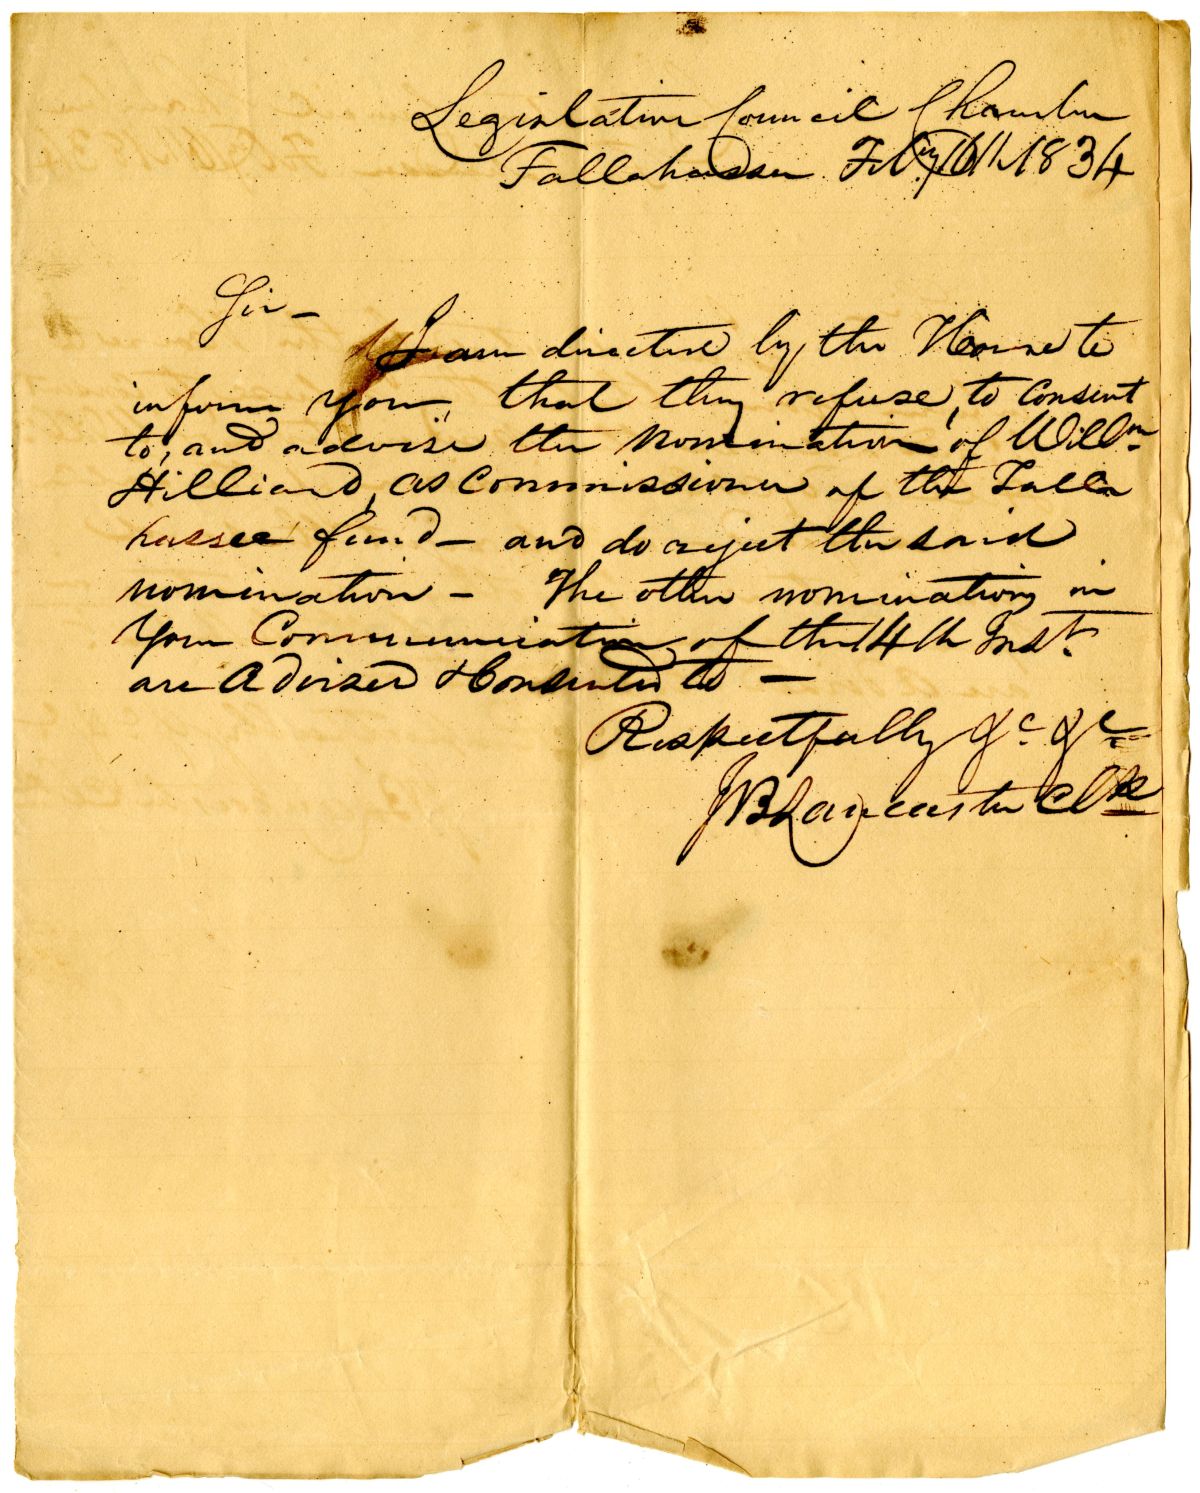 Legislative Council Chamber
Tallahassee Feby 16th 1834
Sir –
I am directed by the House to
inform you, that they refuse, to consent
to, and advise the nomination of Willm
Hilliard, as Commissioner of the Talla
hassee fund – and do reject the said
nomination – The other nominations in
your Communication of the 14th Inst.
are advised & Consented to –
Respectfully &c &c
J B Lancaster Clk